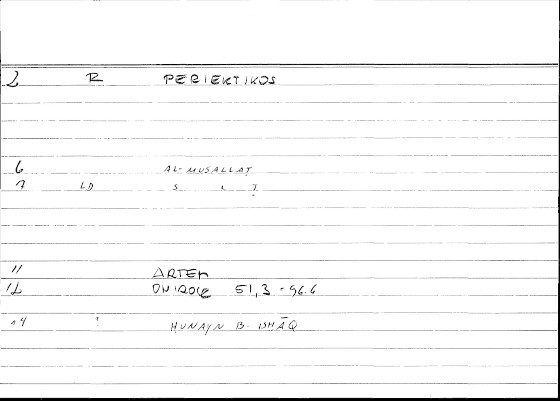 2 R PERIEKTIKOS
6 AL-MUSALLAṬ
7 LD S L Ṭ
11 ARTEM
12 ONIROC 51,3 - 96.6
14 : HUNAYN B- ISHĀQ